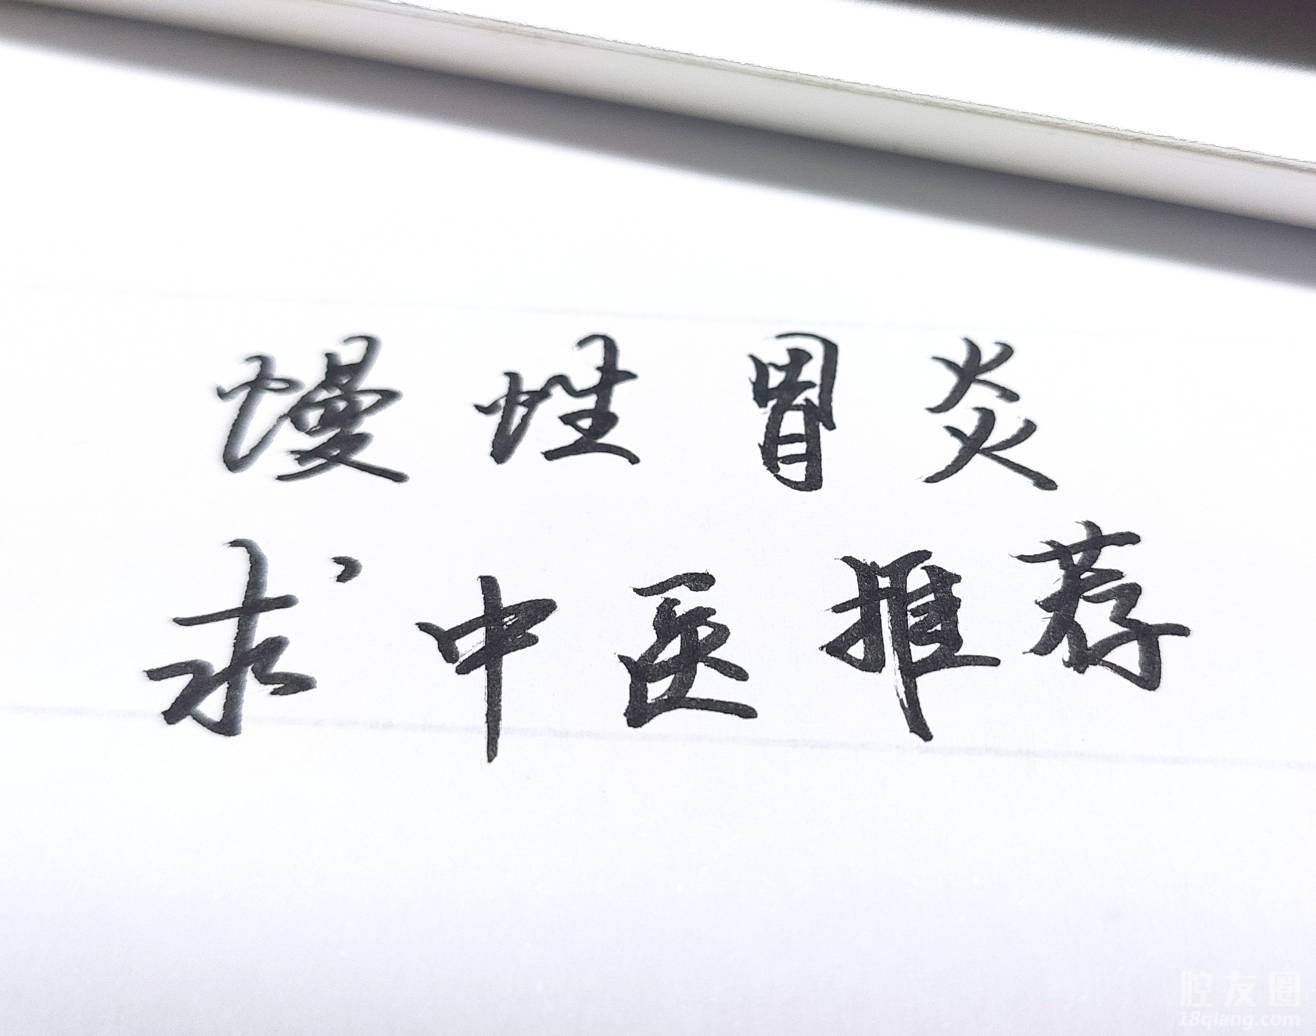 慢性胃炎
求中医推荐
腔友圈
18qiang.com